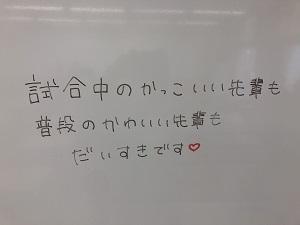 試合中のかっこいい先輩も
普段のかわいい先輩も
だいすきです♡